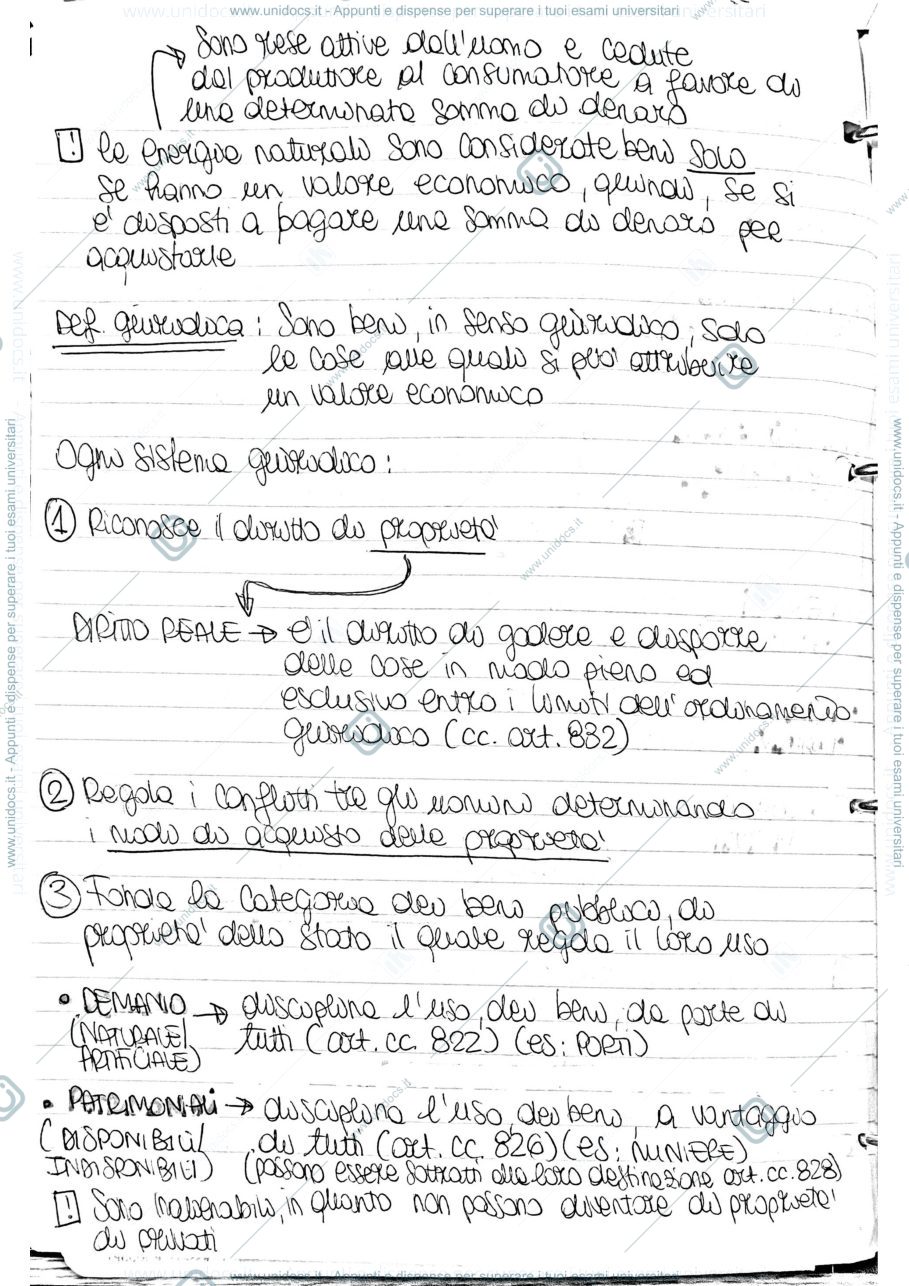 www.unidocs.it - Appunti e dispense per superare i tuoi esami universitari
Sono rese attive dall'uomo e cedute
dal produttore al consumatore a favore di
una determinata somma di denaro
! le energie naturali sono considerate beni solo
se hanno un valore economico, quindi, se si
e' disposti a pagare una somma di denaro per
acquistarle
Def. giuridica: Sono beni, in senso giuridico, solo
le cose alle quali si puo' attribuire
un valore economico
Ogni sistema giuridico:
1 Riconosce il diritto di proprieta'
DIRITTO REALE → e' il diritto di godere e disporre
delle cose in modo pieno ed
esclusivo entro i limiti dell'ordinamento
giuridico (cc. art. 832)
2 Regola i conflitti tra gli uomini determinando
i modi di acquisto della proprieta'
3 Fonda la categoria dei beni pubblici, di
proprieta' dello Stato il quale regola il loro uso
• DEMANIO → disciplina l'uso, dei beni, da parte di
(NATURALE/ tutti (art. cc. 822) (es: PORTI)
ARTIFICIALE)
• PATRIMONIALI → disciplina l'uso, dei beni, a vantaggio
(DISPONIBILI/ di tutti (art. cc. 826) (es: MINIERE)
INDISPONIBILI) (possono essere sottratti alla loro destinazione art. cc. 828)
! Sono inalienabili, in quanto non possono diventare di proprieta'
di privati
www.unidocs.it - Appunti e dispense per superare i tuoi esami universitari
www.unidocs.it - Appunti e dispense per superare i tuoi esami universitari
www.unidocs.it - Appunti e dispense per superare i tuoi esami universitari